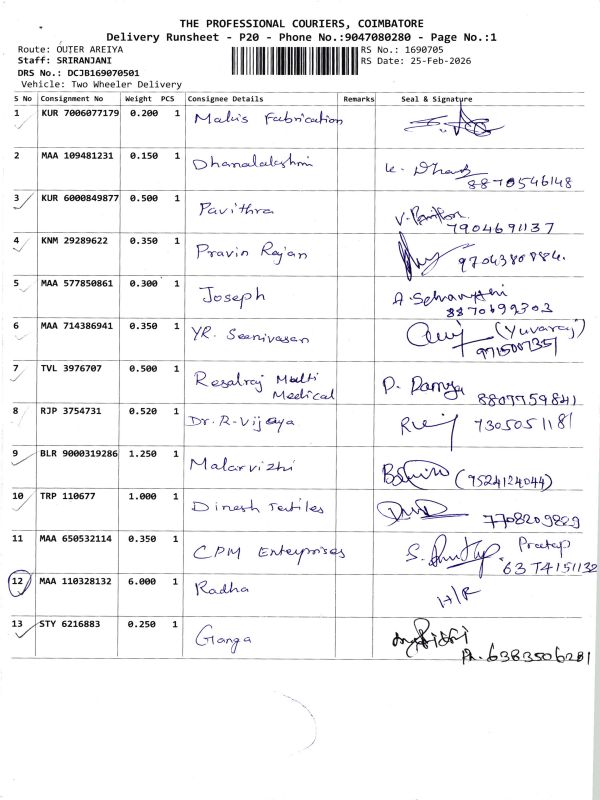 THE PROFESSIONAL COURIERS, COIMBATORE
Delivery Runsheet - P20 - Phone No.:9047080280 - Page No.:1
Route: OUTER AREIYA
RS No.: 1690705
Staff: SRIRANJANI
RS Date: 25-Feb-2026
DRS No.: DCJB169070501
Vehicle: Two Wheeler Delivery
S No Consignment No Weight PCS Consignee Details Remarks Seal & Signature
1 KUR 7006077179 0.200 1 Makis Fabrication
2 MAA 109481231 0.150 1 Dhanalakshmi
8870546148
3 KUR 6000849877 0.500 1 Pavithra
7904691137
4 KNM 29289622 0.350 1 Pravin Rajan
9704380884.
5 MAA 577850861 0.300 1 Joseph
8870699303
6 MAA 714386941 0.350 1 YR. Seenivasan (Yuvaraj)
9715007351
7 TVL 3976707 0.500 1 Resalraj Multi Medical
8807759841
8 RJP 3754731 0.520 1 Dr. R-Vijaya 7305051181
9 BLR 9000319286 1.250 1 Malarvizhi (9524124044)
10 TRP 110677 1.000 1 Dinesh Textiles
7708209829
11 MAA 650532114 0.350 1 CPM Enterprises Pratap
6374151132
12 MAA 110328132 6.000 1 Radha H/R
13 STY 6216883 0.250 1 Ganga
Ph. 6383506281